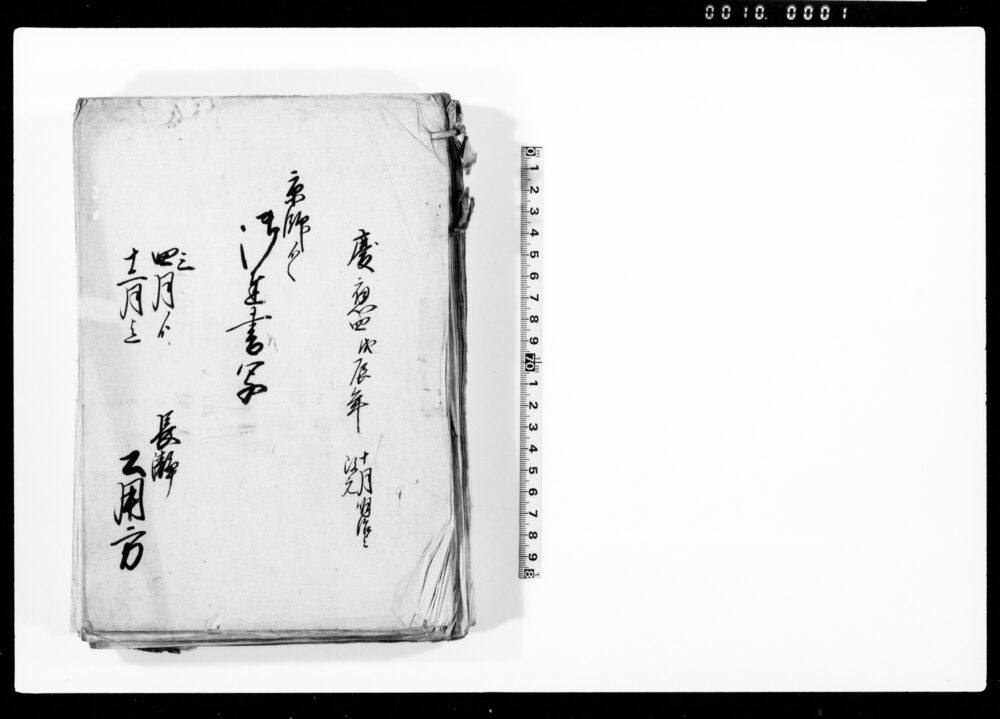 0010. 0001
慶應四戊辰年
十月明治と
改元
京師ゟ
御達書写
三
四月ゟ
十一月迄
長瀞
公用方
0 1 2 3 4 5 6 7 8 9 10 1 2 3 4 5 6 7 8 9